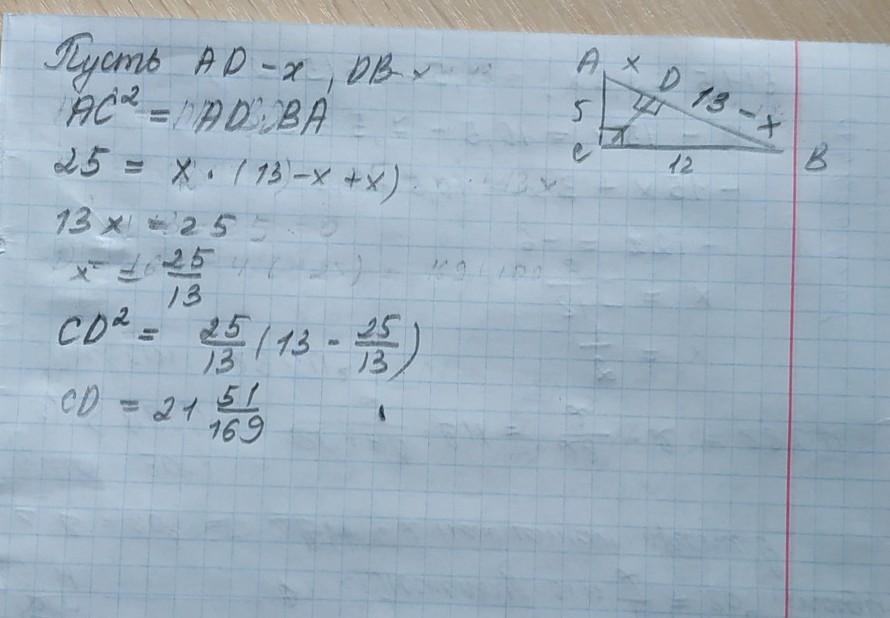 Пусть AD - x, DB - x
AC² = AD · BA
25 = x · (13 - x + x)
13x = 25
x = 25/13
CD² = 25/13 (13 - 25/13)
CD = 21 51/169
A x D
5 13 - x
C x
12 B